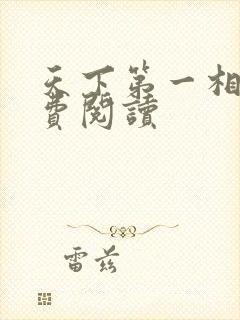 天下第一相
費閱讀
雷兹